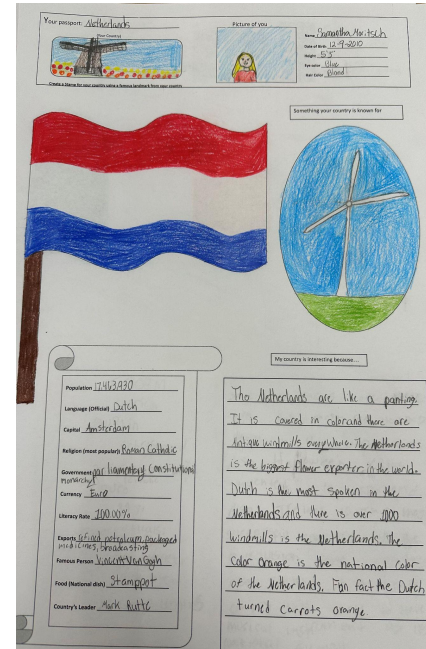 Your passport: Netherlands
Your Country
Create a Stamp for your country using a famous landmark from your country
Picture of you
Name Samantha
Date of Birth 12-9-2010
Height 5'5"
Eye color Blue
Hair Color Blond
Something your country is known for
My country is interesting because…
Population 17,463,930
Language (Official) Dutch
Capital Amsterdam
Religion (most popular) Roman Catholic
Government parliamentary Constitutional
monarchy
Currency Euro
Literacy Rate 100.00%
Exports refined petroleum, packaged
medicines, broadcasting
Famous Person Vincent Van Gogh
Food (National dish) Stamppot
Country's Leader Mark Rutte
The Netherlands are like a painting.
It is covered in color and there are
Antique windmills everywhere. The Netherlands
is the biggest flower exporter in the world.
Dutch is the most spoken in the
Netherlands and there is over 1000
windmills is the Netherlands. The
color orange is the national color
of the Netherlands. Fun fact the Dutch
turned carrots orange.